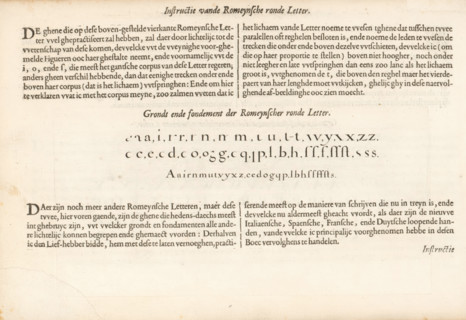 Instructie vande Romeynsche ronde Letter.
DE ghene die op dese boven-gestelde vierkante Romeynsche Let-
ter wel ghepractiseert zal hebben, zal daer door lichtelijck tot de
wetenschap van dese komen, dewelcke wt de weynighe voor-ghe-
melde Figueren ooc haer ghestalte neemt, ende voornamelijc wt de
i, o, ende f, die meest het gantsche corpus van dese Letter regeren,
anders gheen verschil hebbende, dan dat eenighe trecken onder ende
boven haer corpus (dat is het lichaem) wtspringhen: Ende om hier
te verklaren wat ic met het corpus meyne, zoo zalmen weten dat ic
het lichaem vande Letter noeme te wesen tghene dat tusschen twee
parallelen oft reghelen besloten is, ende noeme de leden te wesen de
trecken die onder ende boven dezelve wtschieten, dewelcke ic (om
die op haer proportie te stellen) boven niet hoogher, noch onder
niet leegher en late wtspringhen dan eens zoo lanc als het lichaem
groot is, wtghenomen de t, die boven den reghel maer het vierde-
paert van haer lenghde moet wtkijcken, ghelijc ghy in dese naervol-
ghende af-beeldinghe ooc zien moecht.
Grondt ende fondement der Romeynscher ronde Letter.
a, i, r, r, n, n, m, t, u, t, t, w, y, x, x, z, z.
c, c, e, c, d, c, o, o, g, c, q, ſ, p, l, b, h, ſ, f, ſ, ſt, s, s.
A a i r n m u t v y x z. c e d o g q p. l b h ſ f ſ ſ ſt s.
DAer zijn noch meer andere Romeynsche Letteren, maer dese
twee, hier voren gaende, zijn de ghene die hedens-daechs meest
int ghebruyc zijn, wt welcker grondt en fondamenten alle ande-
re lichtelijc konnen begrepen ende ghemaeckt worden: Derhalven
ic den Lief-hebber bidde, hem met dese te laten vernoeghen, practi-
serende meest op de maniere van schrijven die nu in treyn is, ende
dewelcke nu aldermeest gheacht wordt, als daer zijn de nieuwe
Italiaensche, Spaensche, Fransche, ende Duytsche loopende han-
den, vande welcke ic principalijc voorghenomen hebbe in desen
Boec vervolghens te handelen.
Instructie